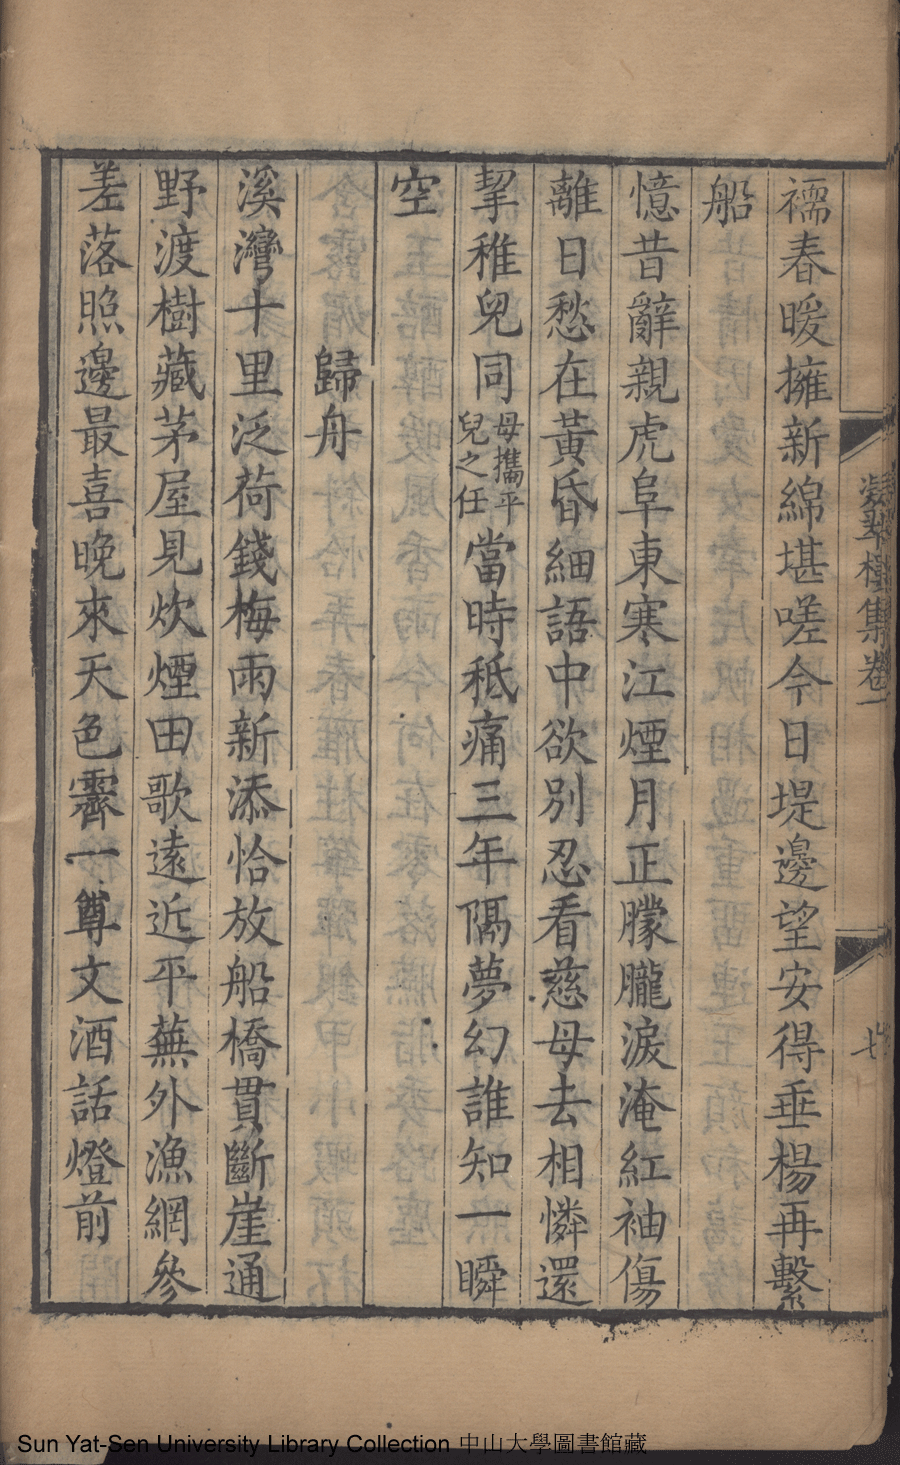 襦春暖擁新綿堪嗟今日堤邊望安得垂楊再繫
船
憶昔辭親虎阜東寒江煙月正朦朧淚淹紅袖傷
離日愁在黃昏細語中欲別忍看慈母去相憐還
挈稚兒同母攜平兒之任當時秪痛三年隔夢幻誰知一瞬
空
歸舟
溪灣十里泛荷錢梅雨新添恰放船橋貫斷崖通
野渡樹藏茅屋見炊煙田歌遠近平蕪外漁網參
差落照邊最喜晚來天色霽一尊文酒話燈前
集卷一
七
Sun Yat-Sen University Library Collection 中山大學圖書館藏